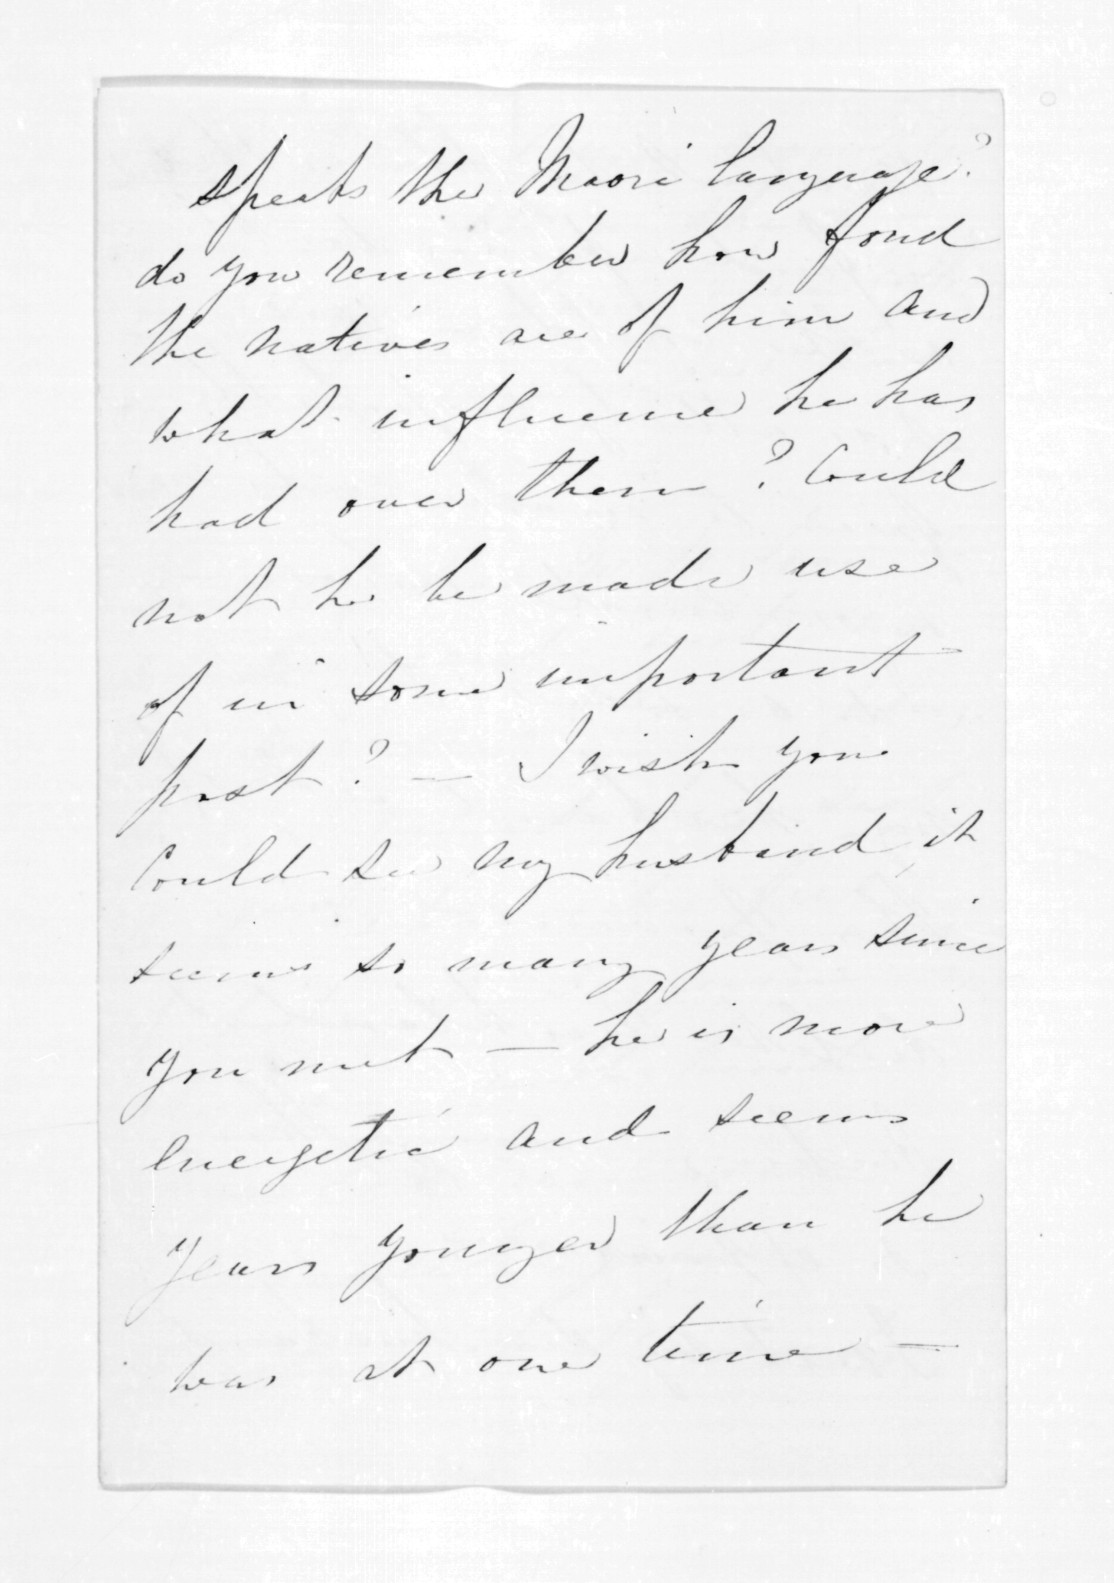 speaks the Maori language?
do you remember how fond
the natives are of him and
what influence he has
had over them? Could
not he be made use
of in some important
post? — I wish you
Could see my husband, it
seems so many years since
you met — he is more
energetic and seems
years younger than he
was at one time —